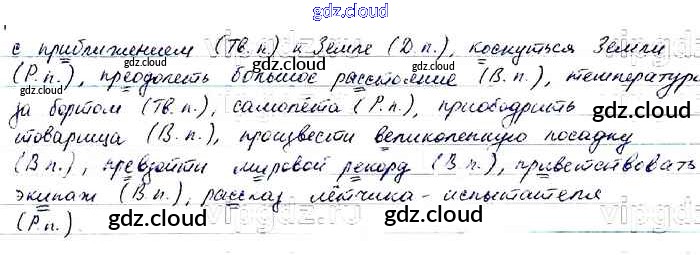 gdz.cloud
с приближением (Тв.п.) к Земле (Д.п.), коснуться Земли
(Р.п.), преодолеть большое расстояние (В.п.), температура
за бортом (Тв.п.), самолёта (Р.п.), приободрить
gdz.cloud gdz.cloud
товарища (В.п.), произвести великолепную посадку
gdz.cloud
(В.п.), превзойти мировой рекорд (В.п.), приветствовать
gdz.cloud
экипаж (В.п.), рассказ лётчика-испытателя
gdz.cloud gdz.cloud
(Р.п.).
gdz.cloud